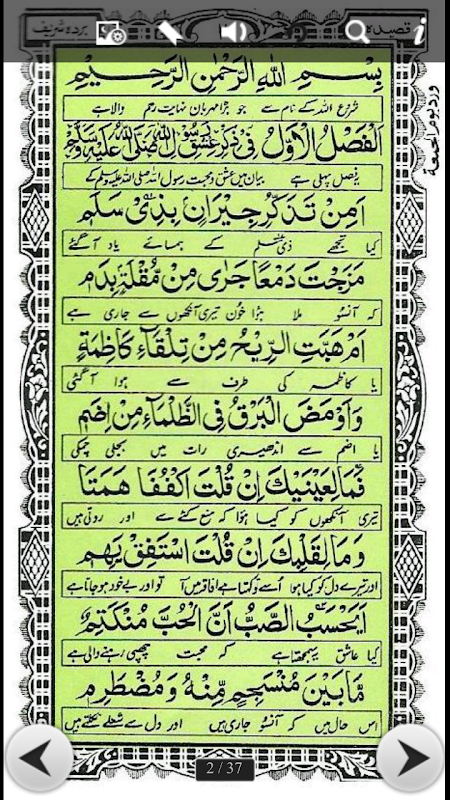 بردہ شریف
ورد یوم الجمعۃ
بِسْمِ اللهِ الرَّحْمٰنِ الرَّحِيْمِ
شروع اللہ کے نام سے جو بڑا مہربان نہایت رحم والا ہے
اَلْفَصْلُ الْاَوَّلُ فِيْ ذِكْرِ عِشْقِ رَسُوْلِ اللهِ صَلَّى اللهُ عَلَيْهِ وَسَلَّمَ
یہ فصل پہلی ہے بیان میں عشق و محبت رسول اللہ صلی اللہ علیہ وسلم کے
اَمِنْ تَذَكُّرِ جِيْرَانٍ بِذِيْ سَلَمٍ
کیا تجھے ذی سلم کے ہمسائے یاد آگئے
مَزَجْتَ دَمْعًا جَرٰى مِنْ مُّقْلَةٍ بِدَمٍ
کہ آنسو ملا ہوا خون تیری آنکھوں سے جاری ہے
اَمْ هَبَّتِ الرِّيْحُ مِنْ تِلْقَآءِ كَاظِمَةٍ
یا کاظمہ کی طرف سے ہوا آگئی
وَاَوْمَضَ الْبَرْقُ فِي الظَّلْمَآءِ مِنْ اِضَمٍ
یا اضم سے اندھیری رات میں بجلی چمکی
فَمَا لِعَيْنَيْكَ اِنْ قُلْتَ اكْفُفَا هَمَتَا
تیری آنکھوں کو کیا ہوا کہ منع کئے سے اور روتی ہیں
وَمَا لِقَلْبِكَ اِنْ قُلْتَ اسْتَفِقْ يَهِمِ
اور تیرے دل کو کیا ہوا اسے تو کہتا ہے افاقہ میں آ تو اور بے خود ہو جاتا ہے
اَيَحْسَبُ الصَّبُّ اَنَّ الْحُبَّ مُنْكَتِمٌ
کیا عاشق یہ سمجھتا ہے کہ محبت چھپی رہنے والی ہے
مَّا بَيْنَ مُنْسَجِمٍ مِّنْهُ وَمُضْطَرِمٍ
اس حال میں کہ آنسو جاری ہیں اور دل سے شعلے نکلتے ہیں
2 / 37